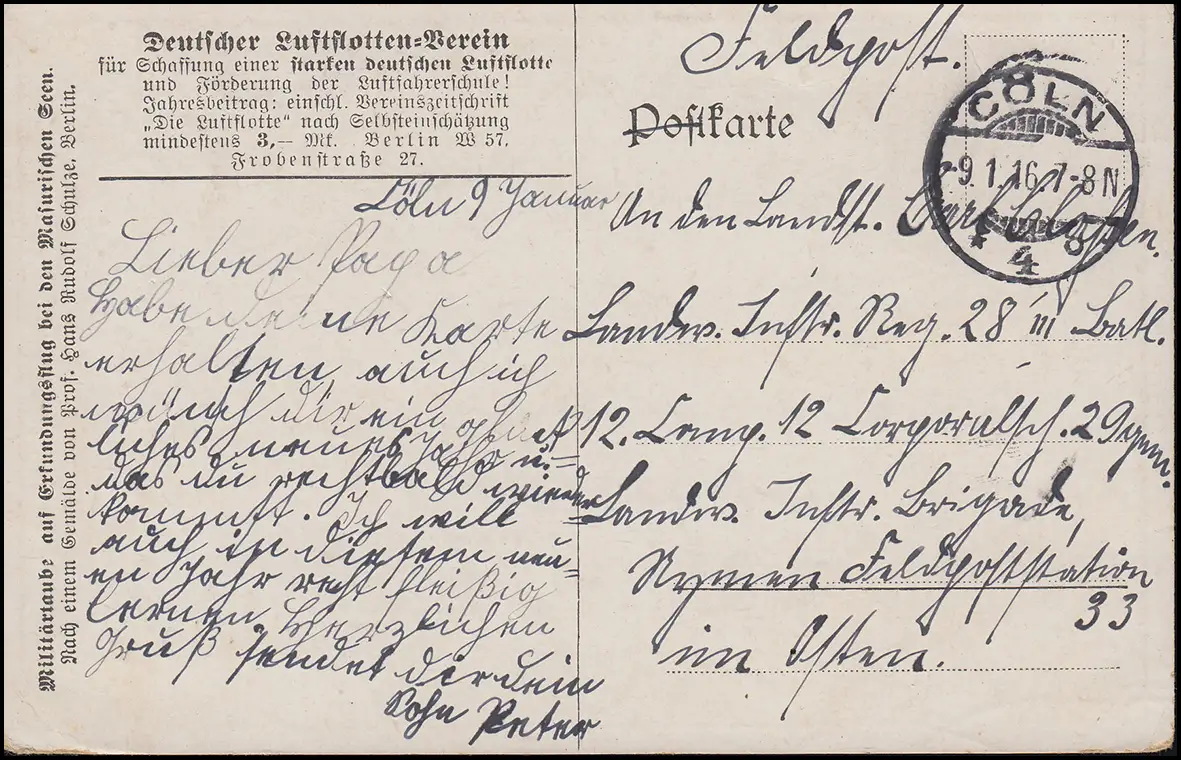 Deutscher Luftflotten-Verein
für Schaffung einer starken deutschen Luftflotte
und Förderung der Luftfahrerschule!
Jahresbeitrag: einschl. Vereinszeitschrift
„Die Luftflotte" nach Selbsteinschätzung
mindestens 3,— Mk. Berlin W 57,
Frobenstraße 27.
Militärtaube auf Erkundungsflug bei den Masurischen Seen.
Nach einem Gemälde von Prof. Hans Rudolf Schulze, Berlin.
Cöln 9 Januar
Lieber Papa
Habe deine Karte
erhalten, auch ich
wünsch dir ein glück
liches neues Jahr u.
das du recht bald wieder
kommst. Ich will
auch in diesem neu-
en Jahr recht fleißig
lernen. Herzlichen
Gruß sendet dir dein
Sohn Peter
Feldpost.
Postkarte
CÖLN
9.1.16.7-8N
* 4 8
An den Landst.
Landw. Inftr. Reg. 28 III Batl.
12. Comp. 12 Corporalsch. 29
Landw. Inftr. Brigade,
Feldpoststation
33
im Osten.